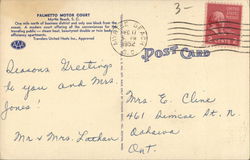 PALMETTO MOTOR COURT
Myrtle Beach, S. C.
One mile north of business district and only one block from the
ocean. A modern court offering all the conveniences for the
traveling public — steam heat, luxuryward double or twin beds
efficiency apartments.
Travelers United Hests Inc. Approved
3-
1952
POST CARD
Seasons Greetings
to you and Mrs.
Jones!
Mr & Mrs. Latham
Mrs. E. Cline
461 Simcoe St. N.
Oshawa
Ont.